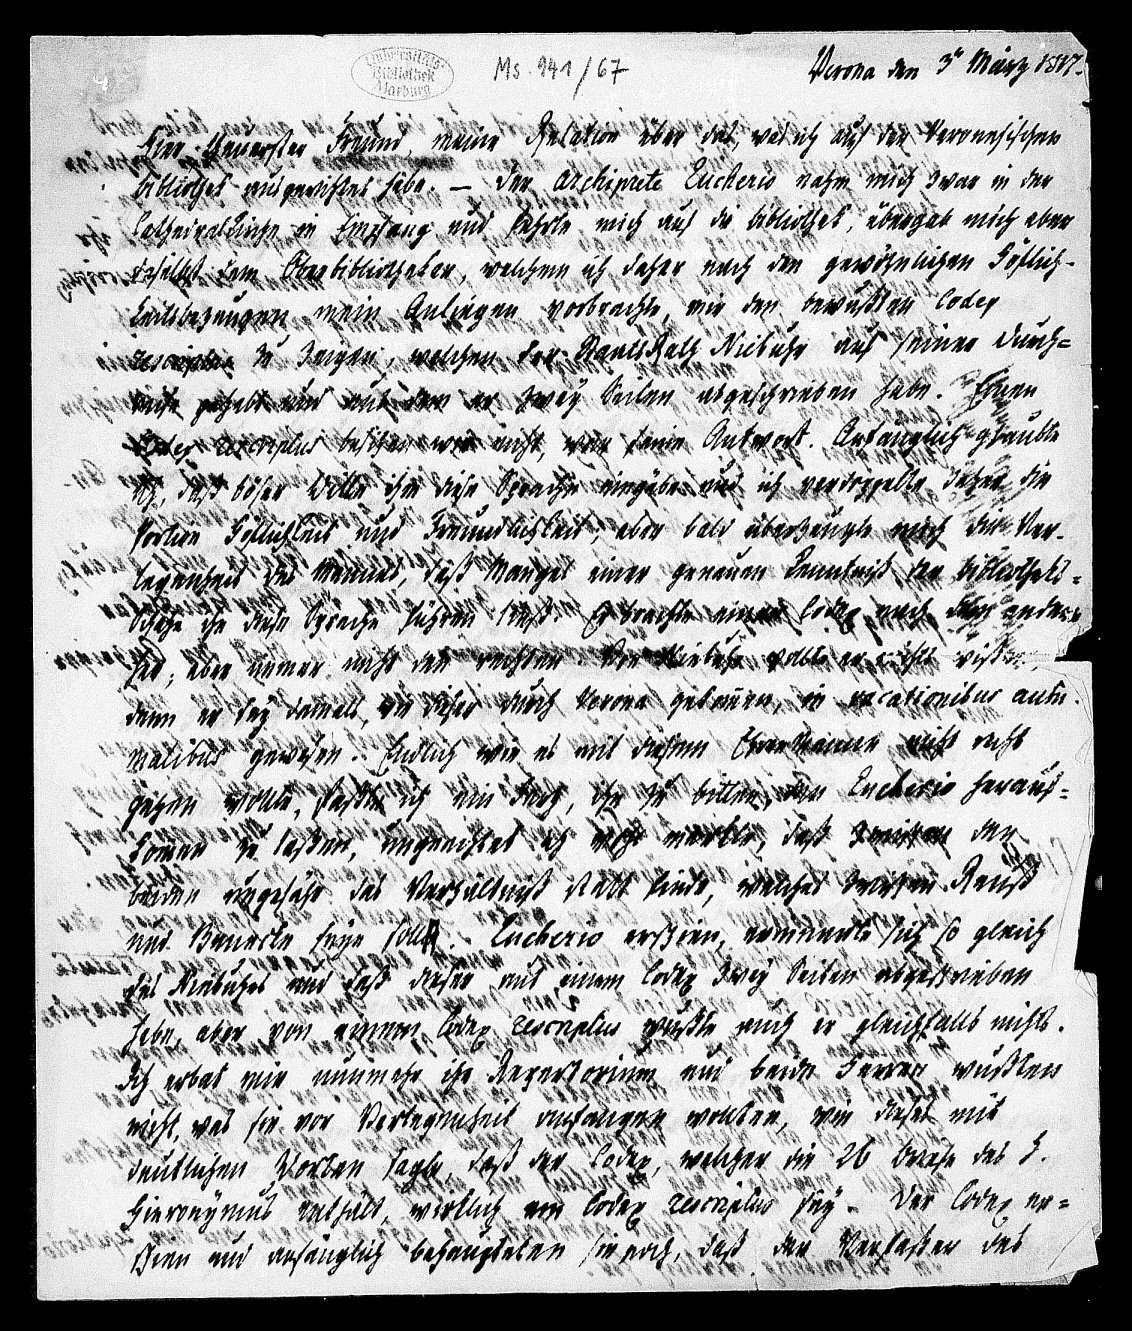 Universitäts-
Bibliothek
Marburg
Ms. 941/67
Verona den 3n März 1817.
Hier, theuerster Freund, meine Relation über das, was ich auf der Veronesischen
Bibliothek ausgerichtet habe. — Der Archiprete Eucherio nahm mich zwar in der
Cathedralkirche in Empfang und führte mich auf die Bibliothek, übergab mich aber
daselbst dem Oberbibliothekar, welchem ich daher nach den gewöhnlichen Höflich-
keitsbezeugungen mein Anliegen vorbrachte, mir den bewußten Codex
rescriptus zu zeigen, welchen der StaatsRath Niebuhr auf seiner Durch=
reise gehabt und aus dem er zwey Seiten abgeschrieben habe. Einen
Codex rescriptus besitzen wir nicht, war seine Antwort. Anfänglich glaubte
ich, daß böser Wille ihm diese Sprache eingäbe und ich verdoppelte daher die
Portion Höflichkeit und Freundlichkeit, aber bald überzeugte mich die Ver-
legenheit des Mannes, daß Mangel einer genauen Kenntniß der Bibliotheks=
Schätze ihn diese Sprache führen ließ. Er brachte einen Codex nach dem andern
her, aber immer nicht den rechten. Von Niebuhr wollte er nichts wissen
denn er sey damals, wie dieser durch Verona gekommen, in vacationibus autu
malibus gewesen. Endlich wie es mit diesem Ehrenmanne nicht recht
gehen wollte, faßte ich ein Herz, ihn zu bitten, den Eucherio heraus=
kommen zu lassen, ungeachtet ich wohl merkte, daß zwischen den
beiden ungefähr das Verhältniß statt finde, welches zwischen Reuß
und Benecke seyn soll. Eucherio erschien, erinnerte sich so gleich
des Niebuhrs und daß dieser aus einem Codex zwey Seiten abgeschrieben
habe, aber von einem Codex rescriptus wußte auch er gleichfalls nichts.
Ich erbat mir nunmehr ihr Repertorium und beide Herren wußten
nicht, was sie vor Verlegenheit anfangen wollten, wie dieses mit
deutlichen Worten sagte daß der Codex, welcher die 26 Briefe des h.
Hieronymus enthält, wirklich ein Codex rescriptus sey. Der Codex er=
schien und anfänglich behaupteten sie noch, daß der Verfasser des